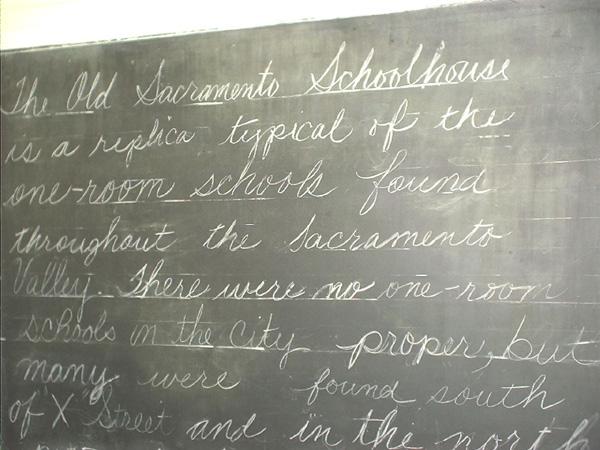 The Old Sacramento Schoolhouse
is a replica typical of the
one-room schools found
throughout the Sacramento
Valley. There were no one-room
schools in the City proper, but
many were found south
of "X" Street and in the north